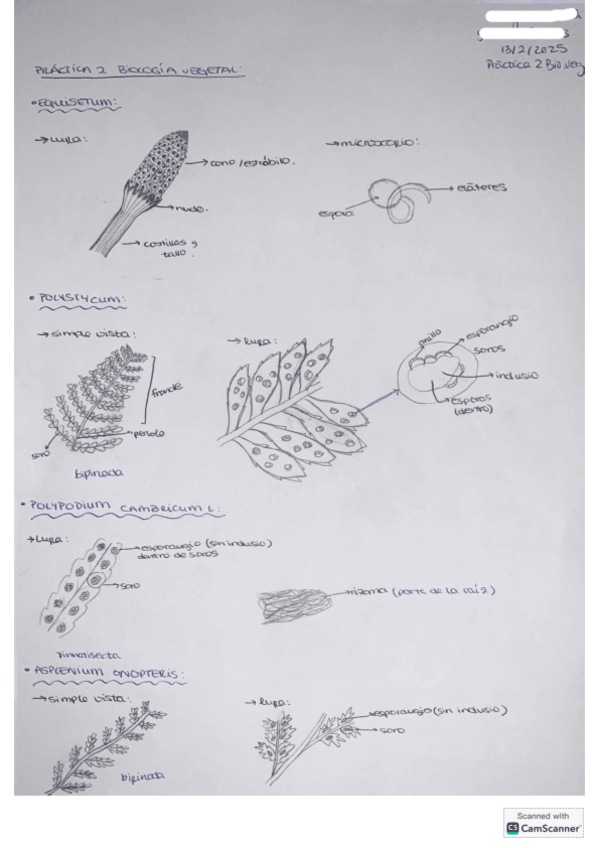 13/2/2025
Práctica 2 Bio.Veg
PRÁCTICA 2 BIOLOGÍA VEGETAL:
• EQUISETUM:
→ LUPA:
→ cono/estróbilo.
→ nudo.
→ costillas y
tallo.
→ microscopio:
espora
→ eláteres
• POLYSTYCUM:
→ simple vista:
fronde
peciolo
soro
bipinada
→ lupa:
anillo
esporangio
soros
→ indusio
→ esporas
(dentro)
• POLYPODIUM CAMBRICUM L:
→ Lupa:
→ esporangio (sin indusio)
dentro de soros
→ soro
pinnatisecta
→ rizoma (parte de la raíz)
• ASPLENIUM ONOPTERIS:
→ simple vista:
bipinada
→ lupa:
→ esporangio (sin indusio)
→ soro
Scanned with
CS CamScanner